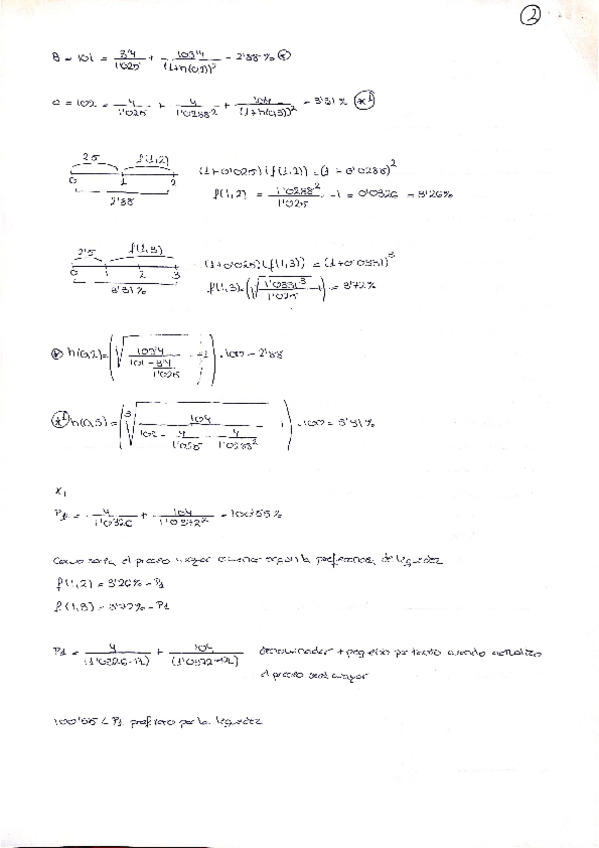 2
B = 101 = 3'4/1'025 + 103'4/(1+h(0,2))² = 2'88% (*)
C = 102 = 4/1'025 + 4/1'0288² + 104/(1+h(0,3))³ = 3'31% (*1)
2'5 f(1,2)
0 1 2
2'88
(1+0'025)(f(1,2)) = (1+0'0288)²
f(1,2) = 1'0288²/1'025 - 1 = 0'0326 = 3'26%
2'5 f(1,3)
0 1 2 3
3'31%
(1+0'025)(f(1,3)) = (1+0'0331)³
f(1,3) = (√(1'0331³/1'025) - 1) = 3'72%
(*) h(0,2) = (√(103'4/(101 - 3'4/1'025)) - 1) · 100 = 2'88
(*1) h(0,3) = (³√(104/(102 - 4/1'025 - 4/1'0288²)) - 1) · 100 = 3'31%
X₁
P₁ = 4/1'0326 + 104/1'0372² = 100'55%
Como sería el precio mayor o menor según la preferencia de liquidez
f(1,2) = 3'26% - P₁
f(1,3) = 3'72% - P₂
P₁ = 4/(1'0326-P₁) + 104/(1'0372-P₂)² denominador + pequeño por tanto cuando actualizo
el precio será mayor
100'55 < P₁ prefiero por la liquidez